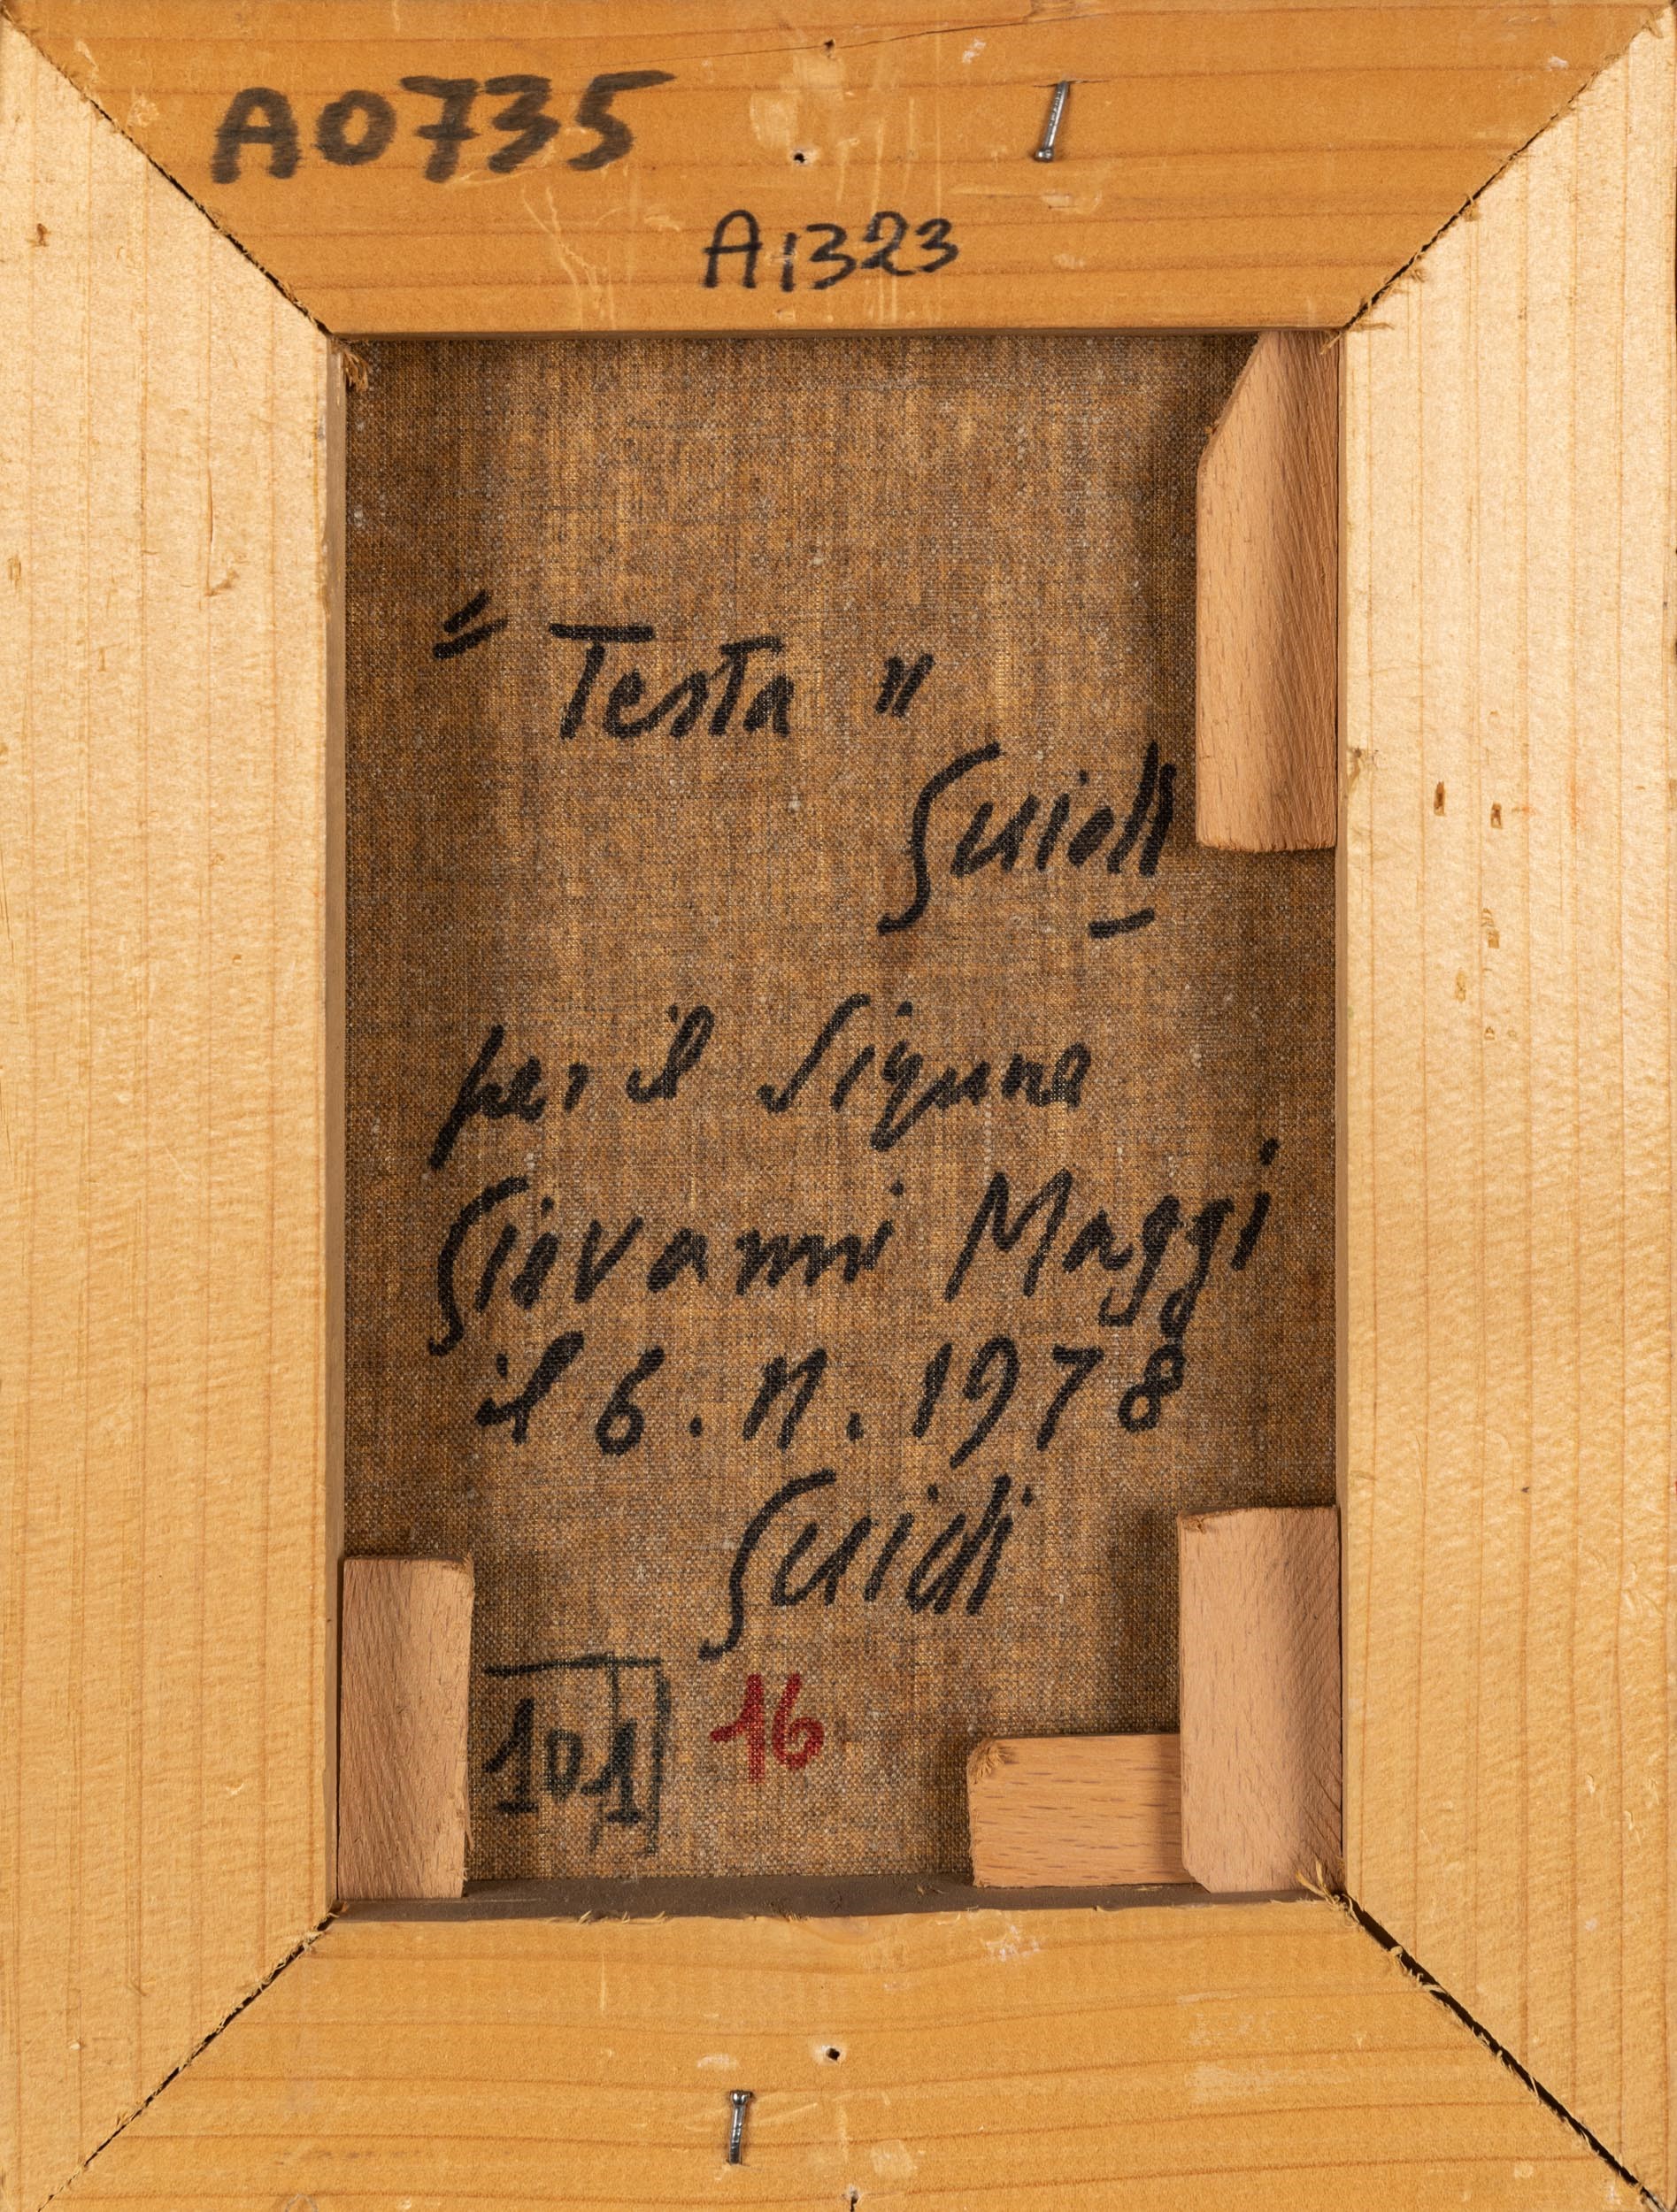 A0735
A1323
"Testa"
Guidi
per il Signore
Giovanni Maggi
il 6. n. 1978
Guidi
101 16